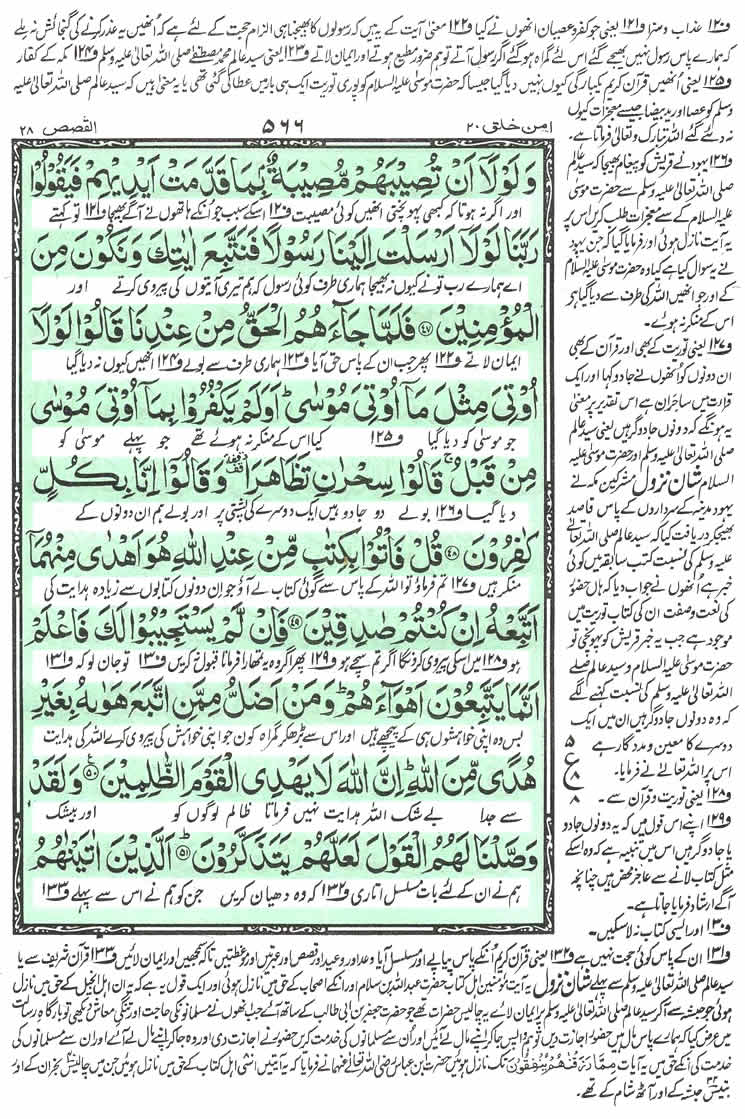 و۱۲۰ عذاب و سزا و۱۲۱ یعنی جو کفر و عصیان انھوں نے کیا و۱۲۲ معنی آیت کے یہ ہیں کہ رسولوں کا بھیجنا ہی الزام حجت کے لئے ہے کہ انھیں یہ عذر کرنے کی گنجائش نہ ملے
کہ ہمارے پاس رسول نہیں بھیجے گئے اس لئے گمراہ ہو گئے اگر رسول آتے تو ہم ضرور مطیع ہوتے اور ایمان لاتے و۱۲۳ یعنی سید عالم محمد مصطفےٰ صلی اللہ تعالیٰ علیہ وسلم و۱۲۴ مکہ کے کفار
و۱۲۵ یعنی انھیں قرآن کریم یکبارگی کیوں نہیں دیا گیا جیسا کہ حضرت موسیٰ علیہ السلام کو پوری توریت ایک ہی بار میں عطا کی گئی تھی یا یہ معنی ہیں کہ سید عالم صلی اللہ تعالیٰ علیہ
وسلم کو عصا اور ید بیضا جیسے معجزات کیوں
نہ دئے گئے اللہ تبارک و تعالیٰ فرماتا ہے۔
و۱۲۶ یہود نے قریش کو پیغام بھیجا کہ سید عالم
صلی اللہ تعالیٰ علیہ وسلم سے حضرت موسیٰ
علیہ السلام کے سے معجزات طلب کریں اس پر
یہ آیت نازل ہوئی اور فرمایا گیا کہ جن یہود
نے یہ سوال کیا ہے کیا وہ حضرت موسیٰ علیہ السلام
کے اور جو انھیں اللہ کی طرف سے دیا گیا ہے
اس کے منکر نہ ہوئے۔
و۱۲۷ یعنی توریت کے بھی اور قرآن کے بھی
ان دونوں کو انھوں نے جادو کہا اور ایک
قرات میں ساحران ہے اس تقدیر پر معنی
یہ ہونگے کہ دونوں جادوگر ہیں یعنی سید عالم
صلی اللہ تعالیٰ علیہ وسلم اور حضرت موسیٰ علیہ
السلام شان نزول مشرکین مکہ نے
یہود مدینہ کے سرداروں کے پاس قاصد
بھیجکر دریافت کیا کہ سید عالم صلی اللہ تعالیٰ
علیہ وسلم کی نسبت کتب سابقہ میں کوئی
خبر ہے انھوں نے جواب دیا کہ ہاں حضور
کی نعت و صفت ان کی کتاب توریت میں
موجود ہے جب یہ خبر قریش کو پہونچی تو
حضرت موسیٰ علیہ السلام و سید عالم صلی
اللہ تعالیٰ علیہ وسلم کی نسبت کہنے لگے
کہ وہ دونوں جادوگر ہیں ان میں ایک
دوسرے کا معین و مددگار ہے
اس پر اللہ تعالیٰ نے فرمایا۔
و۱۲۸ یعنی توریت و قرآن سے۔
و۱۲۹ اپنے اس قول میں کہ یہ دونوں جادو
یا جادوگر ہیں اس میں تنبیہ ہے کہ وہ اسکے
مثل کتاب لانے سے عاجز محض ہیں چنانچہ
آگے ارشاد فرمایا جاتا ہے۔
و۱۳۰ اور ایسی کتاب نہ لا سکیں۔
القصص ۲۸
۵۶۶
امن خلق ۲۰
وَلَوْلَآ اَنْ تُصِیْبَهُمْ مُّصِیْبَةٌۢ بِمَا قَدَّمَتْ اَیْدِیْهِمْ فَیَقُوْلُوْا
اور اگر نہ ہوتا کہ کبھی پہونچتی انھیں کوئی مصیبت و۱۲۰ اسکے سبب جو انکے ہاتھوں نے آگے بھیجا و۱۲۱ تو کہتے
رَبَّنَا لَوْلَآ اَرْسَلْتَ اِلَیْنَا رَسُوْلًا فَنَتَّبِعَ اٰیٰتِكَ وَنَكُوْنَ مِنَ
اے ہمارے رب تو نے کیوں نہ بھیجا ہماری طرف کوئی رسول کہ ہم تیری آیتوں کی پیروی کرتے اور
الْمُؤْمِنِیْنَ ﴿۴۷﴾ فَلَمَّا جَآءَهُمُ الْحَقُّ مِنْ عِنْدِنَا قَالُوْا لَوْلَآ
ایمان لاتے و۱۲۲ پھر جب ان کے پاس حق آیا و۱۲۳ ہماری طرف سے بولے و۱۲۴ انھیں کیوں نہ دیا گیا
اُوْتِیَ مِثْلَ مَآ اُوْتِیَ مُوْسٰی ؕ اَوَلَمْ یَكْفُرُوْا بِمَآ اُوْتِیَ مُوْسٰی
جو موسیٰ کو دیا گیا و۱۲۵ کیا اس کے منکر نہ ہوئے تھے جو پہلے موسیٰ کو
مِنْ قَبْلُ ۚ قَالُوْا سِحْرٰنِ تَظٰهَرَا ۫ وَقَالُوْٓا اِنَّا بِكُلٍّ
دیا گیا و۱۲۶ بولے دو جادو ہیں ایک دوسرے کی پشتی پر اور بولے ہم ان دونوں کے
كٰفِرُوْنَ ﴿۴۸﴾ قُلْ فَاْتُوْا بِكِتٰبٍ مِّنْ عِنْدِ اللّٰهِ هُوَ اَهْدٰی مِنْهُمَآ
منکر ہیں و۱۲۷ تم فرماؤ تو اللہ کے پاس سے کوئی کتاب لے آؤ جو ان دونوں کتابوں سے زیادہ ہدایت کی
اَتَّبِعْهُ اِنْ كُنْتُمْ صٰدِقِیْنَ ﴿۴۹﴾ فَاِنْ لَّمْ یَسْتَجِیْبُوْا لَكَ فَاعْلَمْ
ہو و۱۲۸ میں اسکی پیروی کرونگا اگر تم سچے ہو و۱۲۹ پھر اگر وہ یہ تمھارا فرمانا قبول نہ کریں و۱۳۰ تو جان لو کہ و۱۳۱
اَنَّمَا یَتَّبِعُوْنَ اَهْوَآءَهُمْ ؕ وَمَنْ اَضَلُّ مِمَّنِ اتَّبَعَ هَوٰىهُ بِغَیْرِ
بس وہ اپنی خواہشوں ہی کے پیچھے ہیں اور اس سے بڑھکر گمراہ کون جو اپنی خواہش کی پیروی کرے اللہ کی ہدایت
هُدًی مِّنَ اللّٰهِ ؕ اِنَّ اللّٰهَ لَا یَهْدِی الْقَوْمَ الظّٰلِمِیْنَ ﴿۵۰﴾ وَلَقَدْ
سے جدا بے شک اللہ ہدایت نہیں فرماتا ظالم لوگوں کو اور بیشک
وَصَّلْنَا لَهُمُ الْقَوْلَ لَعَلَّهُمْ یَتَذَكَّرُوْنَ ﴿۵۱﴾ اَلَّذِیْنَ اٰتَیْنٰهُمُ
ہم نے ان کے لئے بات مسلسل اتاری و۱۳۲ کہ وہ دھیان کریں جن کو ہم نے اس سے پہلے و۱۳۳
۵
ع
۸
۸
و۱۳۱ ان کے پاس کوئی حجت نہیں ہے و۱۳۲ یعنی قرآن کریم انکے پاس پیاپے اور مسلسل آیا وعد اور وعید اور قصص اور عبرتیں اور موعظتیں تاکہ سمجھیں اور ایمان لائیں و۱۳۳ قرآن شریف سے یا
سید عالم صلی اللہ تعالیٰ علیہ وسلم سے پہلے شان نزول یہ آیت مومنین اہل کتاب حضرت عبداللہ بن سلام اور انکے اصحاب کے حق میں نازل ہوئی اور ایک قول یہ ہے کہ یہ ان اہل انجیل کے حق میں نازل
ہوئی جو حبشہ سے آکر سید عالم صلی اللہ تعالیٰ علیہ وسلم پر ایمان لائے یہ چالیس حضرات تھے جو حضرت جعفر بن ابی طالب کے ساتھ آئے جب انھوں نے مسلمانوں کی حاجت اور تنگی معاش دیکھی تو بارگاہ رسالت
میں عرض کیا کہ ہمارے پاس مال ہیں حضور اجازت دیں تو ہم واپس جا کر اپنے مال لے آئیں اور ان سے مسلمانوں کی خدمت کریں حضور نے اجازت دی اور وہ جا کر اپنے مال لے آئے اور ان سے مسلمانوں کی
خدمت کی انکے حق میں یہ آیات مِمَّا رَزَقْنٰهُمْ یُنْفِقُوْنَ تک نازل ہوئیں حضرت ابن عباس رضی اللہ تعالیٰ عنہما نے فرمایا کہ یہ آیتیں اسّی اہل کتاب کے حق میں نازل ہوئیں جن میں چالیس نجران کے اور
بتیس حبشہ کے اور آٹھ شام کے تھے۔